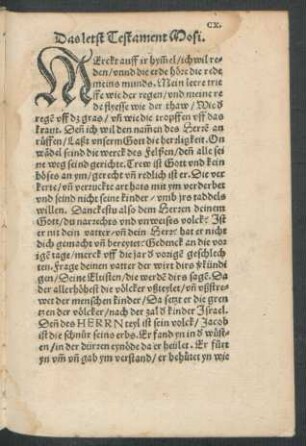 CX.
Das letst Testament Mosi.
MErckt auff ir hymel/ich wil re⸗
den/vnnd die erde höre die rede
meins munds. Mein leer trie
ffe wie der regen/vnd meine re
de fliesse wie der thaw/Wie d
regē vff dz gras/vn̄ wie die tropffen vff das
kraut. Deñ ich wil den namen des Herrē an
rüffen/Laßt vnserm Gott die herligkeit. On
wādel seind die werck des Felsen/deñ alle sei
ne weg seind gerichte. Trew ist Gott vnd kein
böses an ym/gerecht vn̄ redlich ist er. Die ver
kerte vn̄ verruckte art hats mit ym verderbet
vnd seind nicht seine kinder/vmb jrs taddels
willen. Danckestu also dem Herren deinem
Gott/du narrechts vnd vnweises volck? Ist
er nit dein vatter/vn̄ dein Herr? hat er nicht
dich gemacht vn̄ bereytet? Gedenck an die vo⸗
rige tage/merck vff die jar d vorigē geschlech
ten. Frage deinen vatter der wirt dirs vkündi
gen/Deine Eltisten/die werdē dirs sagē. Da
der allerhöhest die völcker vßteylet/vn̄ vßstre⸗
wet der menschen kinder/Da setzt er die gren
tzen der völcker/nach der zal d kinder Israel.
Deñ des HERRN teyl ist sein volck/Jacob
ist die schnür seins erbs. Er fand yn in d wüs⸗
ten/in der dürren eynöde da er heulet. Er fürt
yn vm̄ vn̄ gab ym verstand/er behütet yn wie